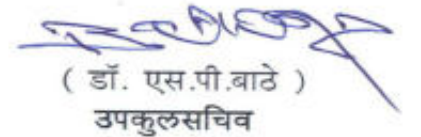 ( डॉ. एस.पी.बाठे )
उपकुलसचिव